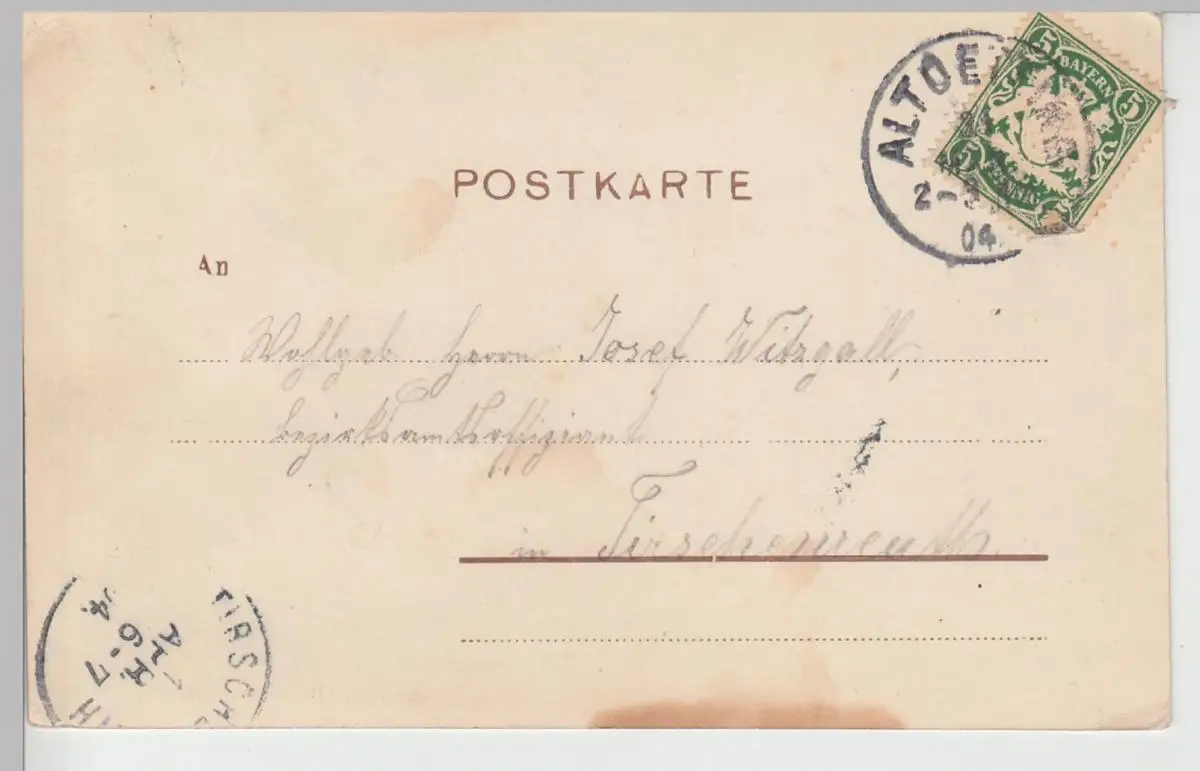 POSTKARTE
ALTOE
5 BAYERN 5
5 PFENNIG
2-3
04
An
Wohlgeb Herrn Josef Witzgall,
Bezirksamtsoffiziant
in Tirschenreuth
TIRSCH
6-7